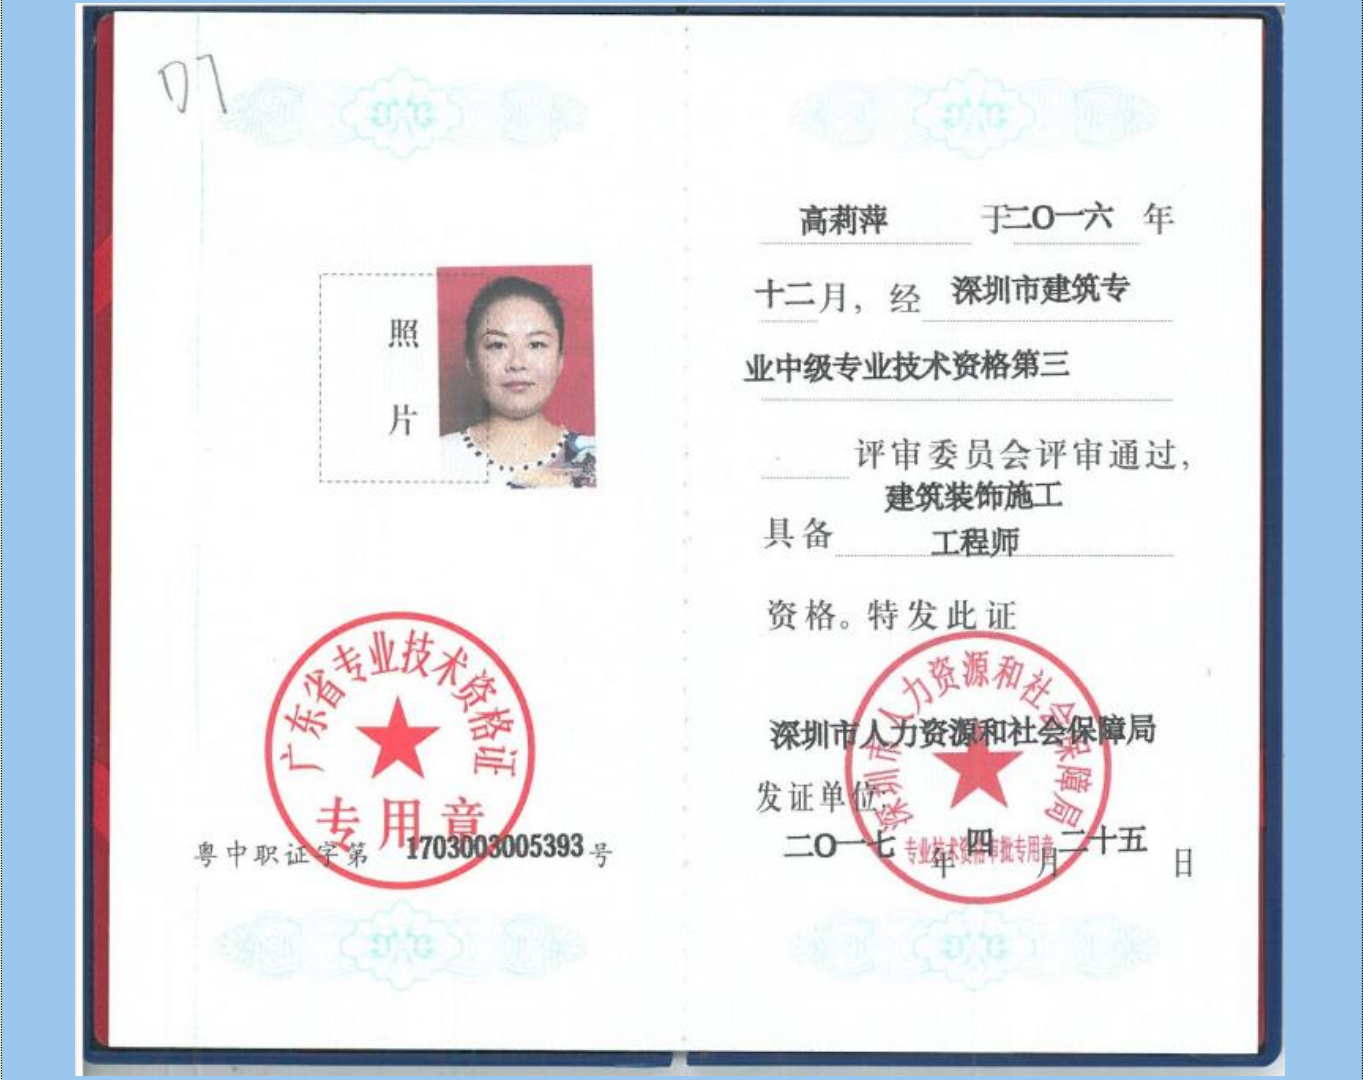 D7
照
片
广东省专业技术资格证
专用章
粤中职证字第 1703003005393 号
高莉萍 于二〇一六 年
十二月，经 深圳市建筑专
业中级专业技术资格第三
评审委员会评审通过，
建筑装饰施工
具备 工程师
资格。特发此证
深圳市人力资源和社会保障局
深圳市人力资源和社会保障局
发证单位：
二〇一七 年 四 月 二十五 日
专业技术资格审批专用章